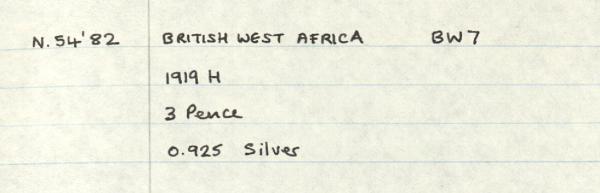 N.54'82 BRITISH WEST AFRICA BW7
1919 H
3 Pence
0.925 Silver